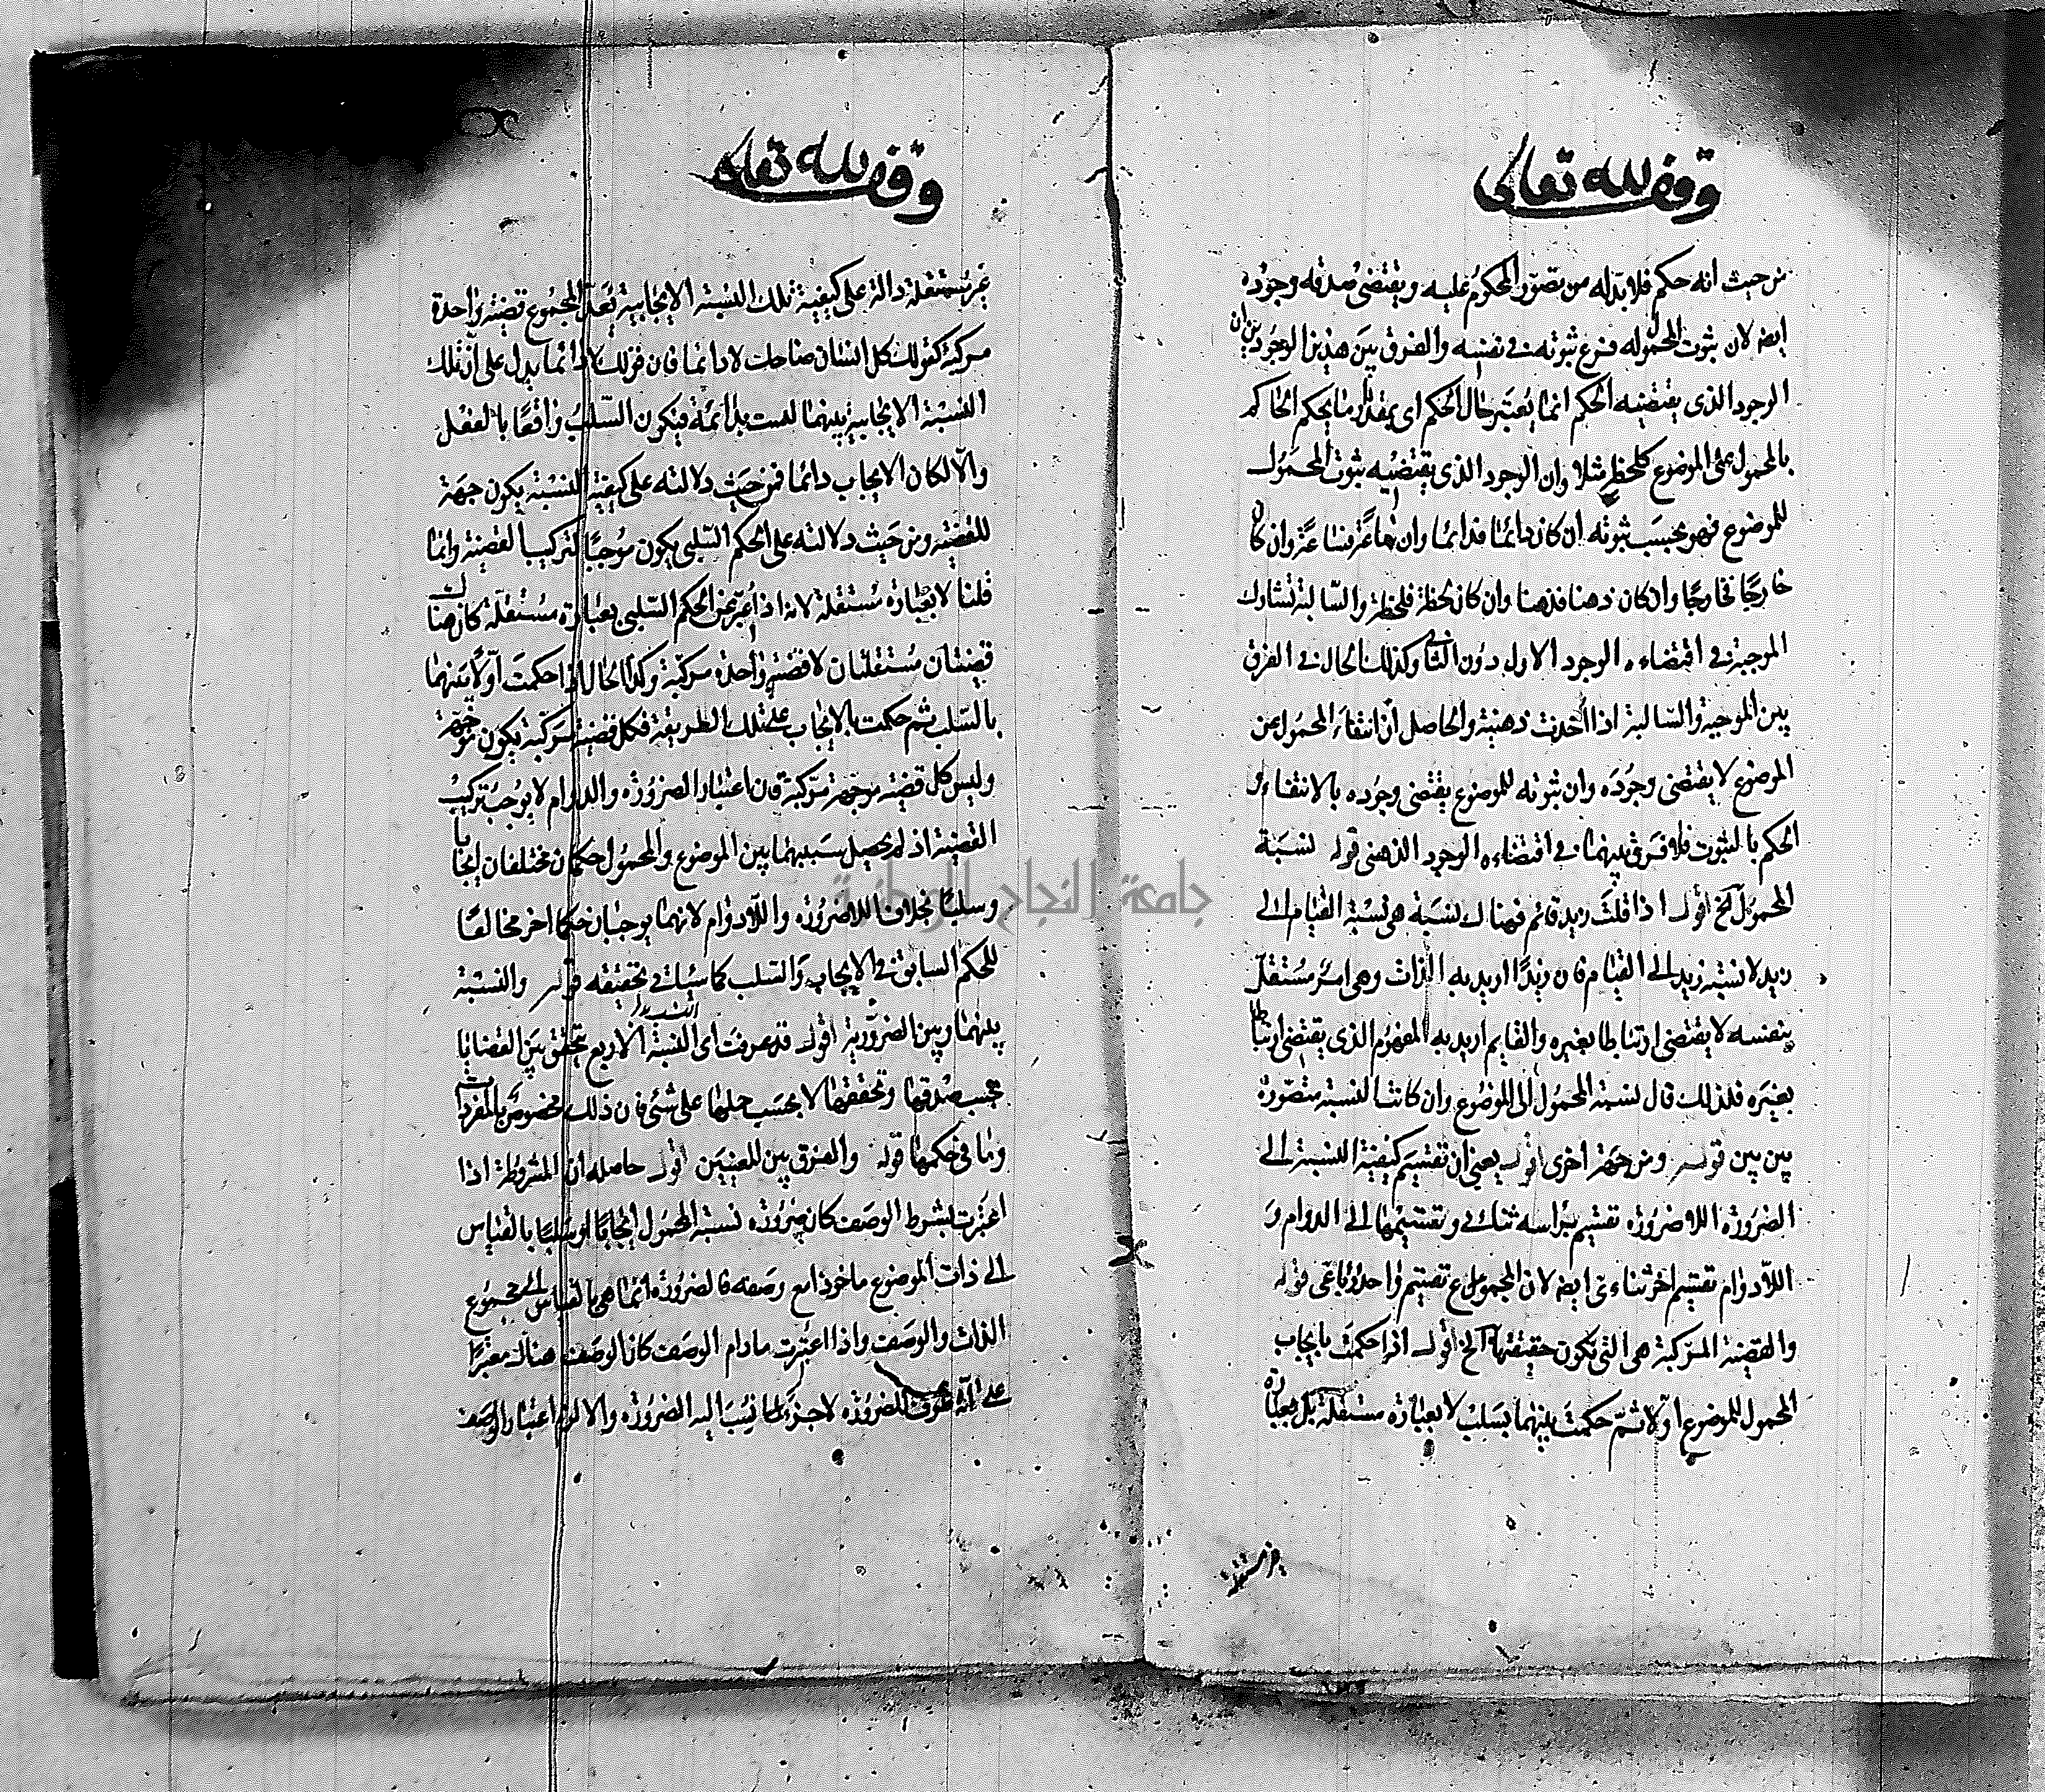 وقف لله تعالى
من حيث انه حكم فلا بد له من تصور المحكوم عليه ويقتضى صدقه وجوده
ايضا لان ثبوت المحمول له فرع ثبوته في نفسه والفرق بين هذين الوجودين ان
الوجود الذى يقتضيه الحكم انما يعتبر حال الحكم اى بمقدار ما يحكم الحاكم
بالمحمول على الموضوع كلحظة مثلا وان الوجود الذى يقتضيه ثبوت المحمول
للموضوع فهو بحسب ثبوته ان كان دائما فدائما وان ساعة فساعة وان كان
خارجا فخارجا وان كان ذهنا فذهنا وان كان لحظة فلحظة والسالبة تشارك
الموجبة في اقتضاء الوجود الاول دون الثانى وكذلك الحال في الفرق
بين الموجبة والسالبة اذا اخذت ذهنية والحاصل ان انتفاء المحمول عن
الموضوع لا يقتضى وجوده وان ثبوته للموضوع يقتضى وجوده بالانتفاء
الحكم بالثبوت فلا فرق بينهما في اقتضاءه الوجود الذهنى قوله نسبة
المحمول الخ اقول اذا قلت زيد قائم فهناك نسبة هى نسبة القيام الى
زيد لا نسبة زيد الى القيام فان زيدا اريد به الذات وهى امر مستقل
بنفسه لا يقتضى ارتباطا بغيره والقايم اريد به المفهوم الذى يقتضى ارتباطا
بغيره فلذلك قال نسبة المحمول الى الموضوع وان كانت النسبة متصورة
بين بين قوله ومن جهة اخرى اقول يعنى ان تقسيم كيفية النسبة الى
الضرورة اللا ضرورة تقسيم براسه ثنائى وتقسيمها الى الدوام و
اللادوام تقسيم اخر ثناءى ايضا لان المجموع تقسيم واحد رباعى قوله
والقضية المركبة هى التى تكون حقيقتها الخ اقول اذا حكمت بايجاب
المحمول للموضوع اولا ثم حكمت بينهما بسلب لا بعبارة مستقلة بل بعبارة
غير مستقلة
وقف لله تعالى
غير مستقلة دالة على كيفية تلك النسبة الايجابية يعد المجموع قضية واحدة
مركبة كقولك كل انسان ضاحك لا دائما فان قولك لا دائما يدل على ان تلك
النسبة الايجابية بينهما ليست بدائمة فيكون السلب واقعا بالفعل
والا لكان الايجاب دائما فمن حيث دلالته على كيفية النسبة يكون جهة
للقضية ومن حيث دلالته على الحكم السلبى يكون موجبا لتركيب القضية وانما
قلنا لا بعبارة مستقلة لانه اذا عبر عن الحكم السلبى بعبارة مستقلة كان هناك
قضيتان مستقلتان لا قضية واحدة مركبة وكذا الحال اذا حكمت اولا بينهما
بالسلب ثم حكمت بالايجاب على تلك الطريقة فكل قضية مركبة يكون موجهة
وليس كل قضية موجهة مركبة فان اعتبار الضرورة والدوام لا يوجب تركيب
القضية اذ لم يحصل بسببهما بين الموضوع والمحمول حكمان مختلفان ايجابا
وسلبا بخلاف اللاضرورة واللادوام لانهما يوجبان حكما اخر مخالفا
للحكم السابق في الايجاب والسلب كما سياتي تحقيقه قوله والنسبة
بينهما وبين الضرورية اقول قد عرفت اى النسبة الاربع يتحقق بين القضايا
بحسب صدقها وتحققها لا بحسب حملها على شئ فان ذلك مخصوص بالمفردات
وما في حكمها قوله والفرق بين المعنيين اقول حاصله ان المشروطة اذا
اعتبرت بشرط الوصف كان ضرورة نسبة المحمول ايجابا او سلبا بالقياس
الى ذات الموضوع ماخوذا مع وصفه فالضرورة انما هى بالقياس الى مجموع
الذات والوصف واذا اعتبرت مادام الوصف كان الوصف هناك معتبرا
على انه ظرف للضرورة لا جزء لما نسب اليه الضرورة والا لزم اعتبار الوصف
جامعة النجاح الوطنية